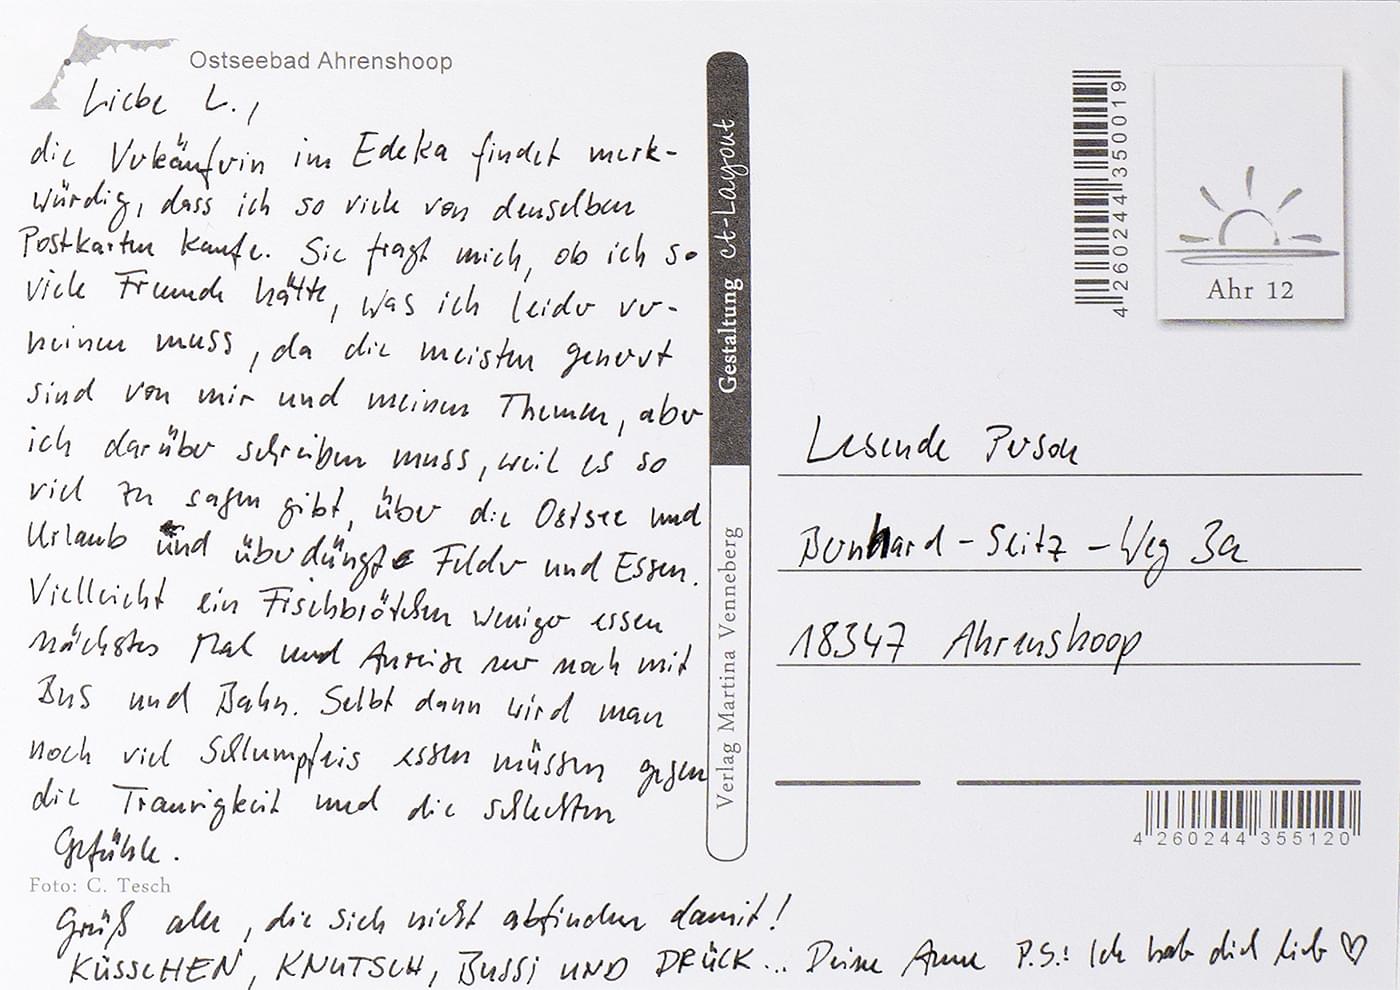 Ostseebad Ahrenshoop
Liebe L.,
die Verkäuferin im Edeka findet merk-
würdig, dass ich so viele von denselben
Postkarten kaufe. Sie fragt mich, ob ich so
viele Freunde hätte, was ich leider ver-
neinen muss, da die meisten genervt
sind von mir und meinen Themen, aber
ich darüber schreiben muss, weil es so
viel zu sagen gibt, über die Ostsee und
Urlaub und überdüngte Felder und Essen.
Vielleicht ein Fischbrötchen weniger essen
nächstes Mal und Anreise nur noch mit
Bus und Bahn. Selbt dann wird man
noch viel Schlumpfeis essen müssen gegen
die Traurigkeit und die schlechten
Gefühle.
Foto: C. Tesch
Grüß alle, die sich nicht abfinden damit!
KÜSSCHEN, KNUTSCH, BUSSI UND DRÜCK... Deine Anne P.S.: Ich hab dich lieb ♡
Gestaltung ct-Layout
Verlag Martina Venneberg
4 260244 350019
Ahr 12
Lesende Person
Bernhard-Seitz-Weg 3a
18347 Ahrenshoop
4 260244 355120